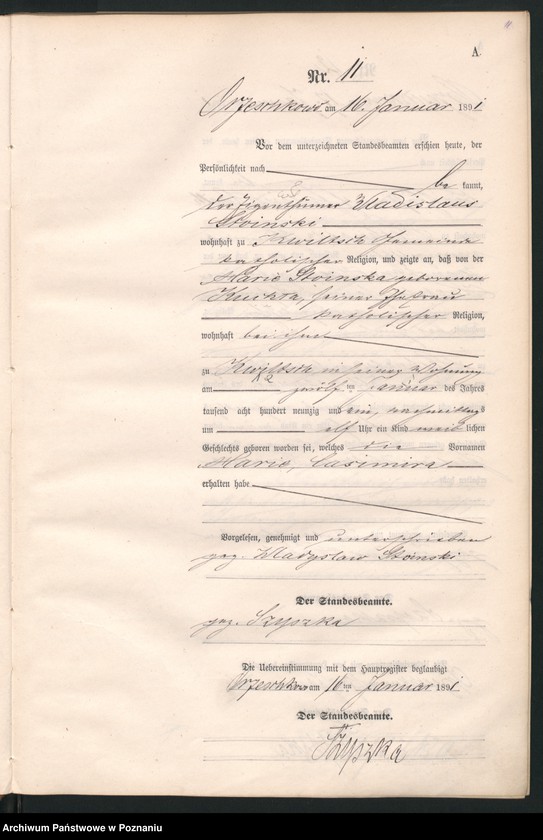 11
A.
Nr. 11
Orzeschkowo am 16. Januar 1891
Vor dem unterzeichneten Standesbeamten erschien heute, der
Persönlichkeit nach be kannt,
der Eigenthümer Wladislaus
Stoinski
wohnhaft zu Kwiltsch Gemeinde
katholischer Religion, und zeigte an, daß von der
Marie Stoinska geborenen
Kuchta, seiner Ehefrau
katholischer Religion,
wohnhaft bei ihm
zu Kwiltsch in seiner Wohnung
am zwölf ten Januar des Jahres
tausend acht hundert neunzig und ein, nachmittags
um elf Uhr ein Kind weib lichen
Geschlechts geboren worden sei, welches die Vornamen
Marie, Casimira
erhalten habe
Vorgelesen, genehmigt und unterschrieben
gez. Wladyslaw Stoinski
Der Standesbeamte.
gez. Szyszka
Die Uebereinstimmung mit dem Hauptregister beglaubigt
Orzeschkowo am 16 ten Januar 1891
Der Standesbeamte.
Szyszka
Archiwum Państwowe w Poznaniu